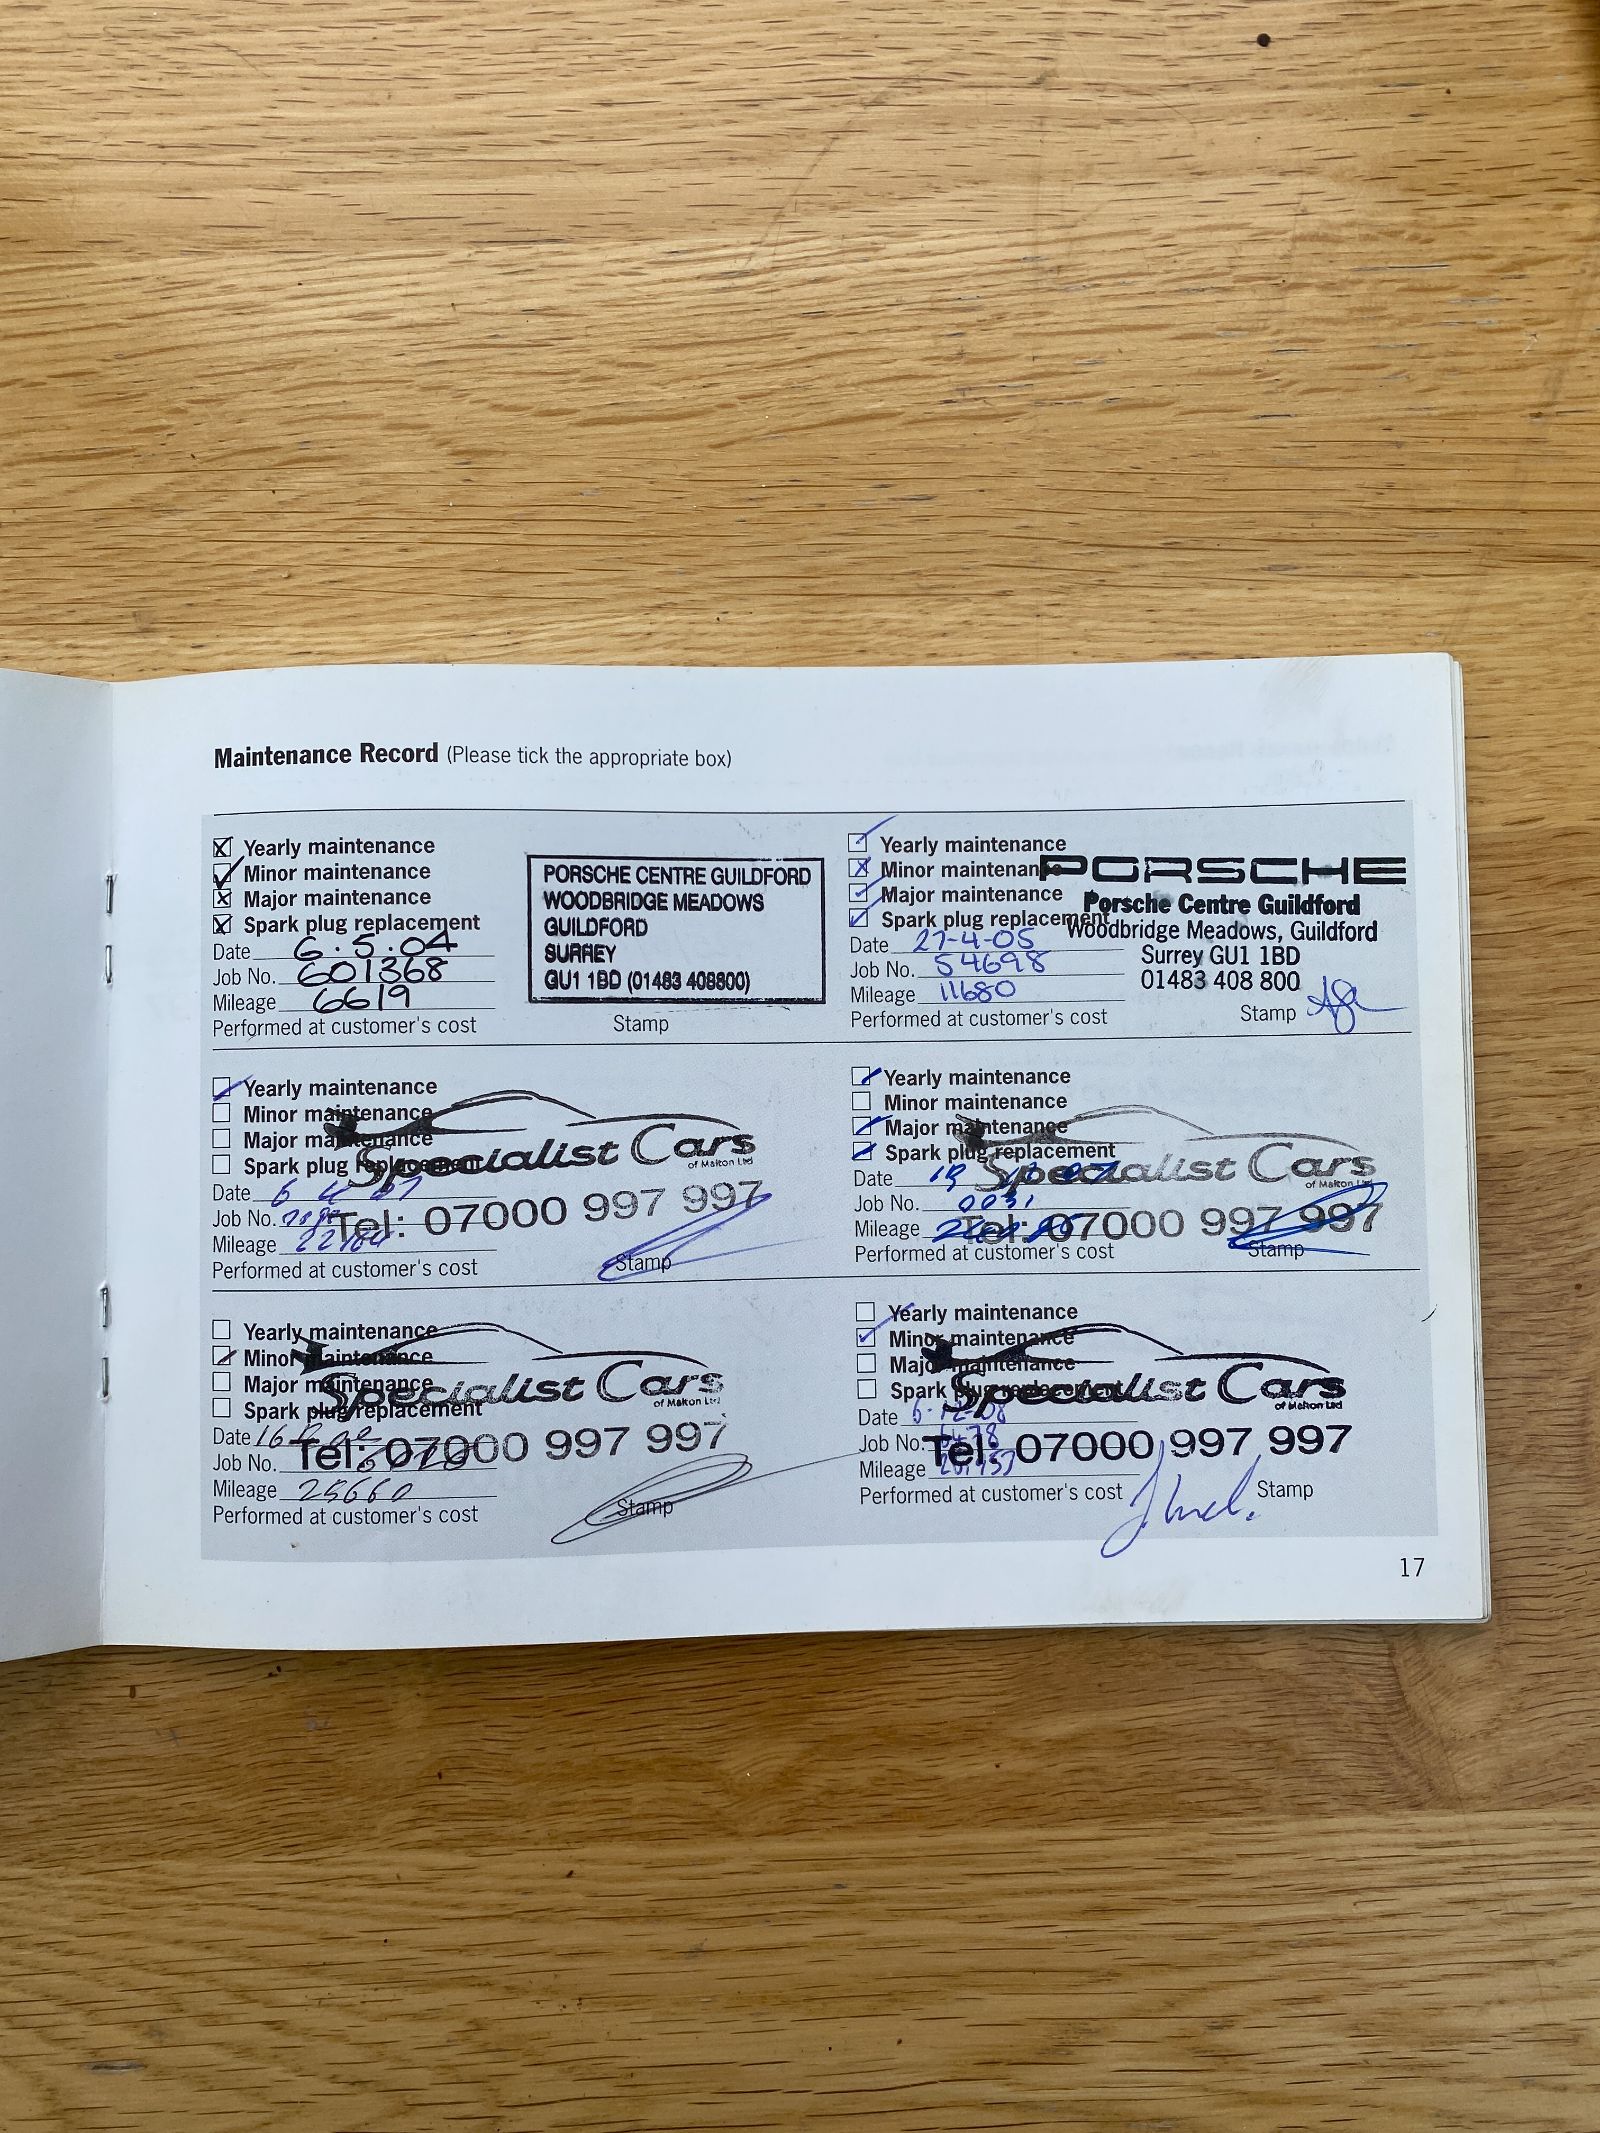 Maintenance Record (Please tick the appropriate box)
Yearly maintenance
Minor maintenance
Major maintenance
Spark plug replacement
Date 6.5.04
Job No. 601368
Mileage 6619
Performed at customer's cost
PORSCHE CENTRE GUILDFORD
WOODBRIDGE MEADOWS
GUILDFORD
SURREY
GU1 1BD (01483 408800)
Stamp
Yearly maintenance
Minor maintenance
Major maintenance
Spark plug replacement
Date 27-4-05
Job No. 54698
Mileage 11680
Performed at customer's cost
PORSCHE
Porsche Centre Guildford
Woodbridge Meadows, Guildford
Surrey GU1 1BD
01483 408 800
Stamp
Yearly maintenance
Minor maintenance
Major maintenance
Spark plug replacement
Date
Job No.
Mileage
Performed at customer's cost
Specialist Cars
of Malton Ltd
Tel: 07000 997 997
Stamp
Yearly maintenance
Minor maintenance
Major maintenance
Spark plug replacement
Date
Job No. 0031
Mileage
Performed at customer's cost
Specialist Cars
of Malton Ltd
Tel: 07000 997 997
Stamp
Yearly maintenance
Minor maintenance
Major maintenance
Spark plug replacement
Date
Job No.
Mileage 25660
Performed at customer's cost
Specialist Cars
of Malton Ltd
Tel: 07000 997 997
Stamp
Yearly maintenance
Minor maintenance
Major maintenance
Spark plug replacement
Date 6-12-08
Job No.
Mileage
Performed at customer's cost
Specialist Cars
of Malton Ltd
Tel: 07000 997 997
Stamp
17